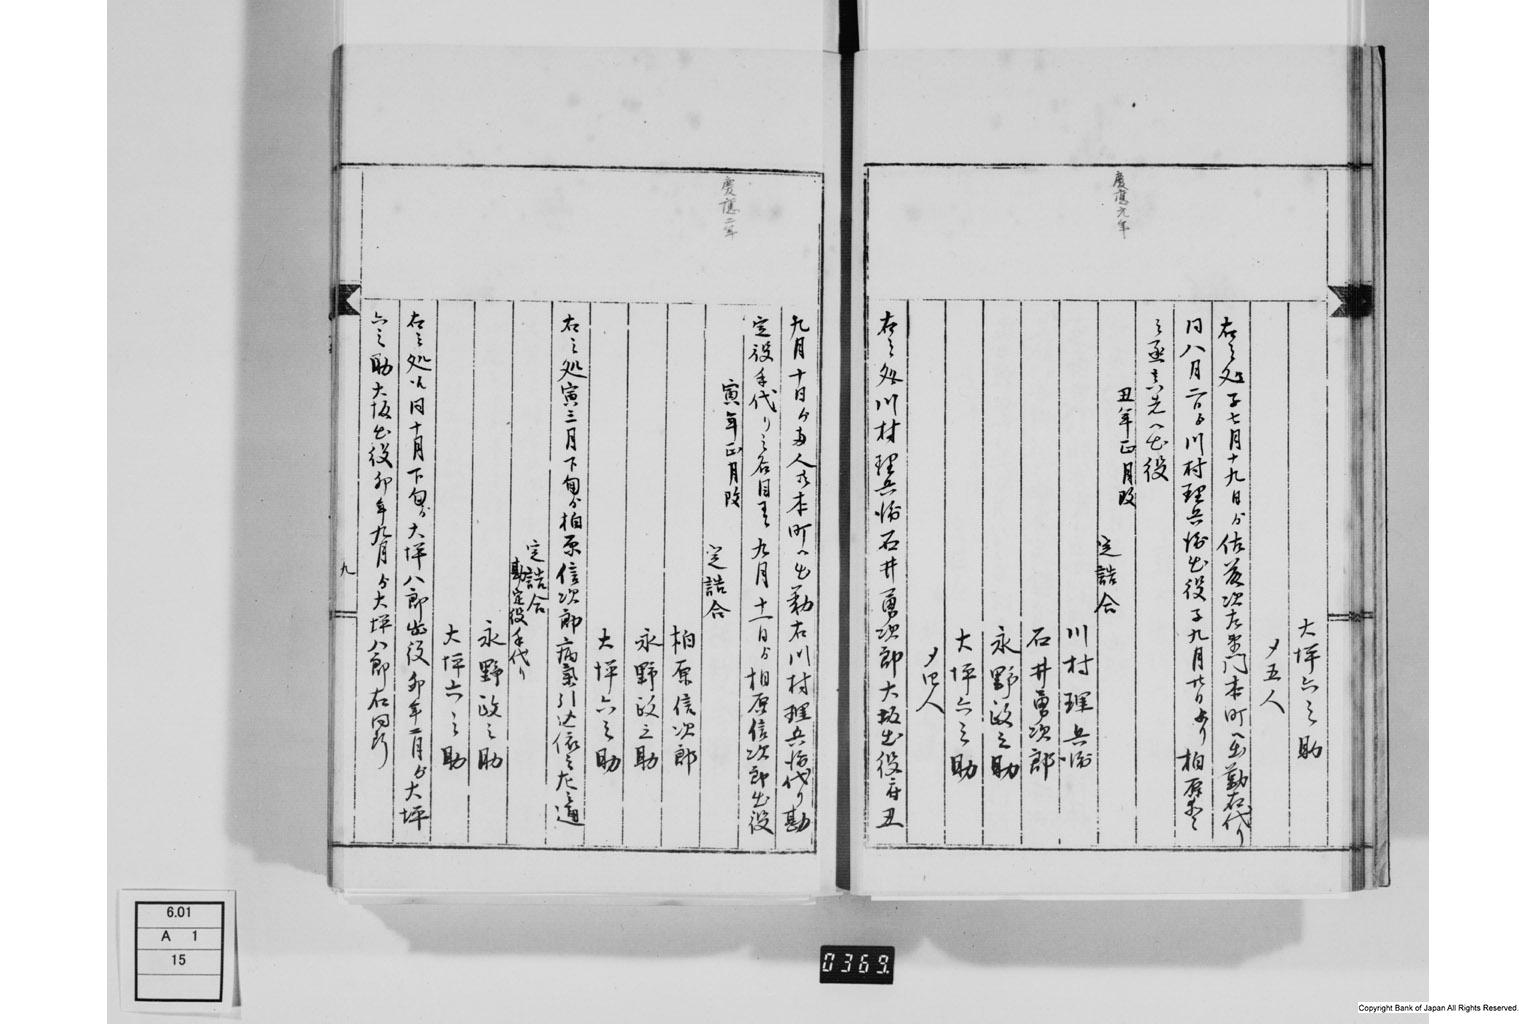 大坪六之助
〆五人
右之処子七月十九日ゟ佐藤次左衛門本町へ出勤右代り
同八月二日ゟ川村理兵衛出役子九月廿日より柏原
之丞真先へ出役
慶應元年
丑年正月改
定詰合
川村理兵衛
石井勇次郎
永野政之助
大坪六之助
〆四人
右之処川村理兵衛石井勇次郎大坂出役ニ付丑
九月十日ゟ両人共本町へ出勤右川村理兵衛代り勘
定役手代り之名目ニ而九月十一日ゟ柏原信次郎出役
慶應二年
寅年正月改
定詰合
柏原信次郎
永野政之助
大坪六之助
右之処寅三月下旬ゟ柏原信次郎病氣引込依之左之通
定詰合
勘定役手代り
永野政之助
大坪六之助
右之処同十月下旬ゟ大坪八郎出役卯年二月ゟ大坪
六之助大坂出役卯年九月ゟ大坪八郎右同断
九
6.01
A 1
15
0369
Copyright Bank of Japan All Rights Reserved.